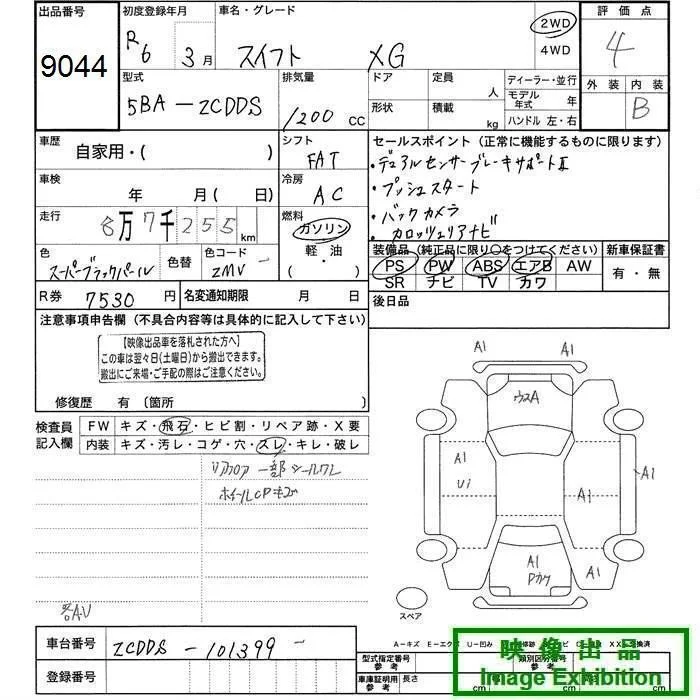 出品番号 初度登録年月 車名・グレード 評価点
9044 R6 3月 スイフト XG 2WD 4WD 4
型式 排気量 ドア 定員 人 ディーラー・並行 外装 内装
5BA-ZCDDS 1200 CC 形状 積載 kg モデル年式 年 ハンドル 左・右 B
車歴 シフト セールスポイント (正常に機能するものに限ります)
自家用・( ) FAT ・デュアルセンサーブレーキサポートⅡ
車検 冷房 ・プッシュスタート
年 月(日) AC ・バックカメラ
走行 燃料 ・カロッツェリアナビ
8万7千255km ガソリン 軽・油 ( )
装備品(純正品に限り○をつけてください) 新車保証書
色 色替 色コード PS PW ABS エアB AW 有・無
スーパーブラックパール ZMV- SR ナビ TV カワ
R券 7530円 名変通知期限 月 日 後日品
注意事項申告欄 (不具合内容等は具体的に記入して下さい)
【映像出品車を落札された方へ】
この車は翌々日(土曜日)から搬出できます。
搬出にご来場・ご手配の際はご注意ください。
修復歴 有〔箇所
検査員記入欄 FW キズ・飛石・ヒビ割・リペア跡・X要
内装 キズ・汚レ・コゲ・穴・スレ・キレ・破レ
リアフロア一部シールワレ
A1 A1
ウスA
A1 A1 A1
Ui
A1 A1
Pカケ
スペア
車台番号 ZCDDS-101399-
登録番号
A-キズ E-エクボ U-凹み
型式指定番号 参考 類別区分番号 参考
車庫証明用 参考 長さ cm cm cm
映像出品
Image Exhibition